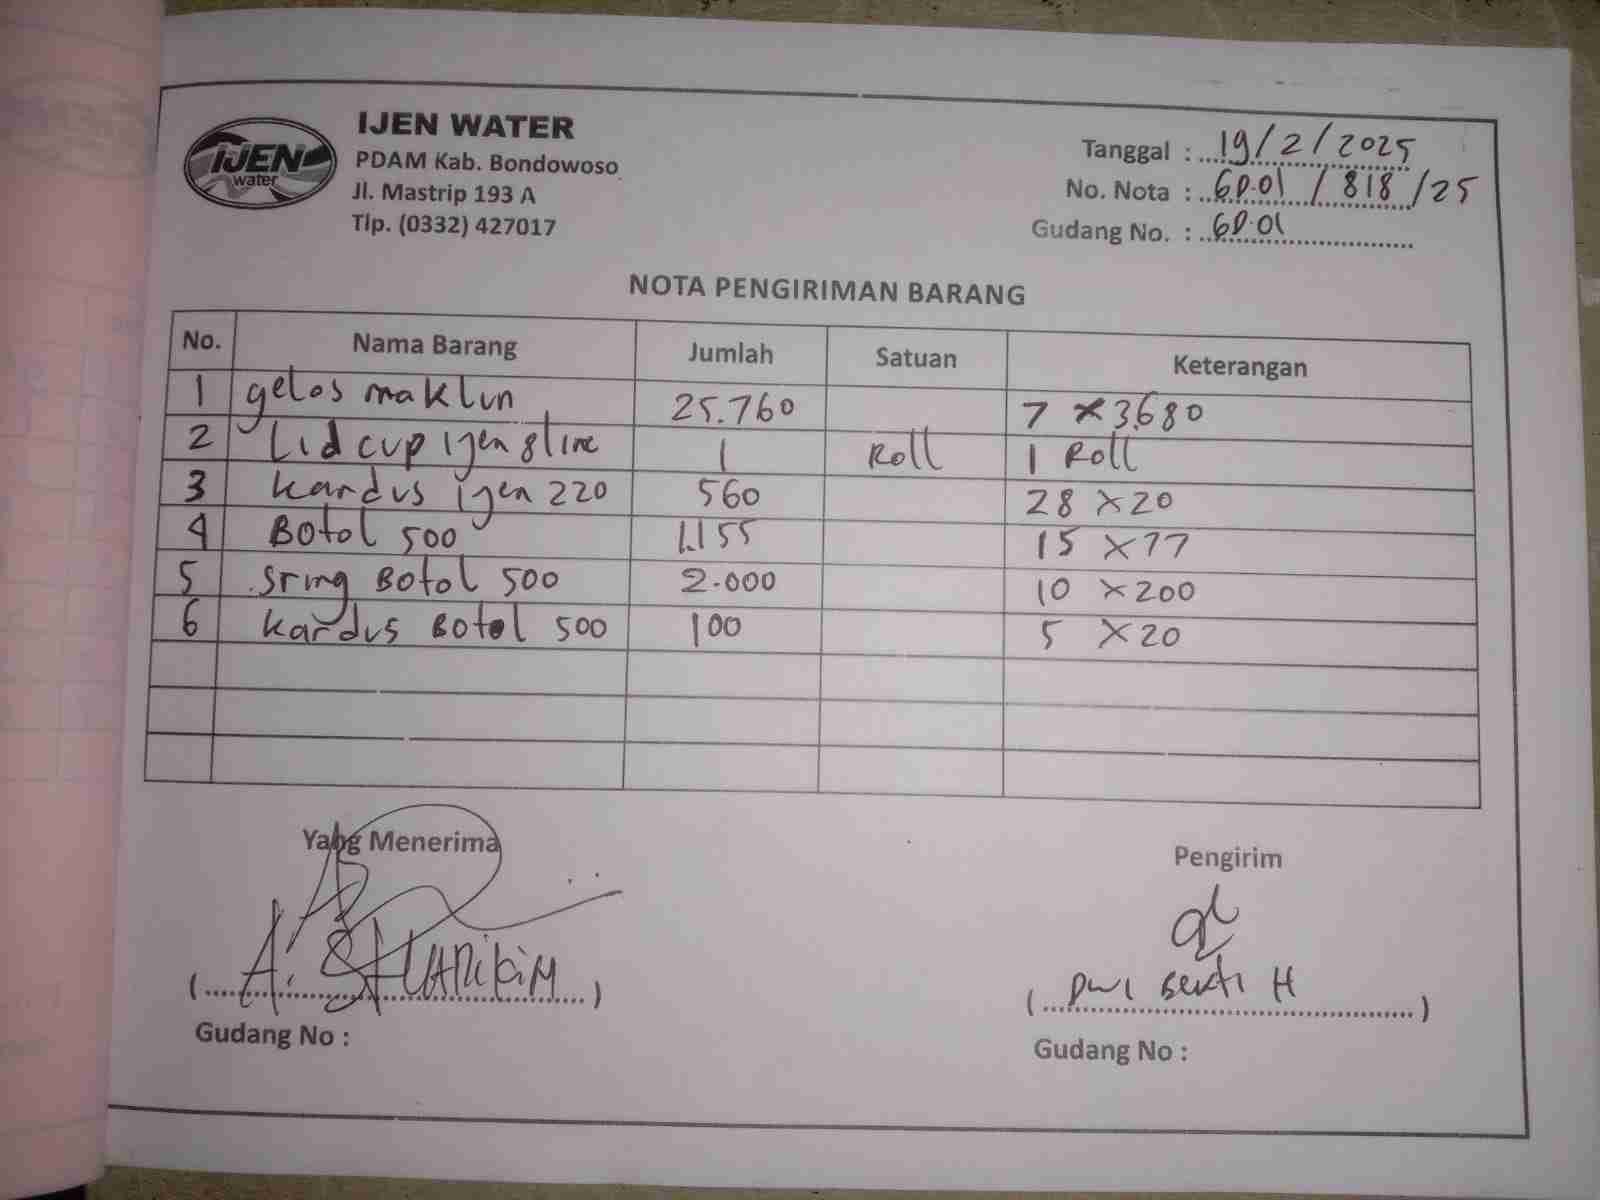 IJEN
water
IJEN WATER
PDAM Kab. Bondowoso
Jl. Mastrip 193 A
Tlp. (0332) 427017
Tanggal : 19/2/2025
No. Nota : GD.01 / 818 /25
Gudang No. : GD.01
NOTA PENGIRIMAN BARANG
No. Nama Barang Jumlah Satuan Keterangan
1 gelas maklun 25.760 7 x 3.680
2 Lid cup ijen 8 line 1 Roll 1 Roll
3 Kardus ijen 220 560 28 x 20
4 Botol 500 1.155 15 x 77
5 Sring Botol 500 2.000 10 x 200
6 Kardus Botol 500 100 5 x 20
Yang Menerima
Pengirim
Dwi Bekti H
Gudang No :
Gudang No :